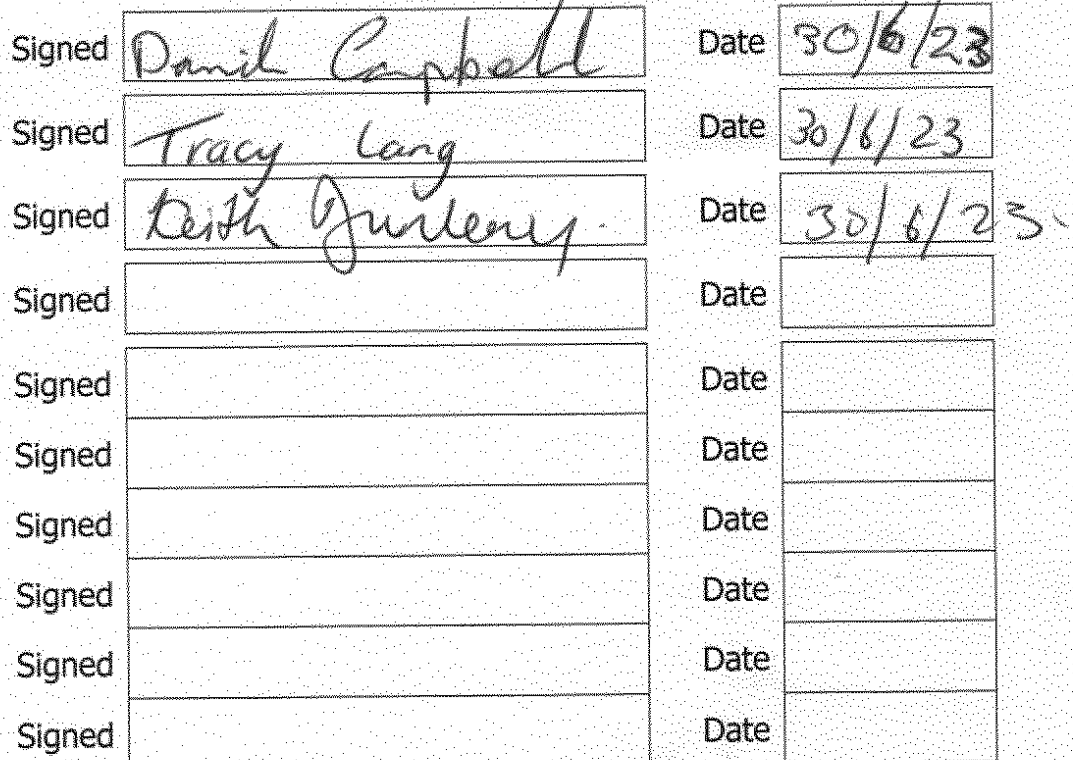 Signed Daniel Campbell Date 30/6/23
Signed Tracy Lang Date 30/6/23
Signed Keith Date 30/6/23.
Signed Date
Signed Date
Signed Date
Signed Date
Signed Date
Signed Date
Signed Date